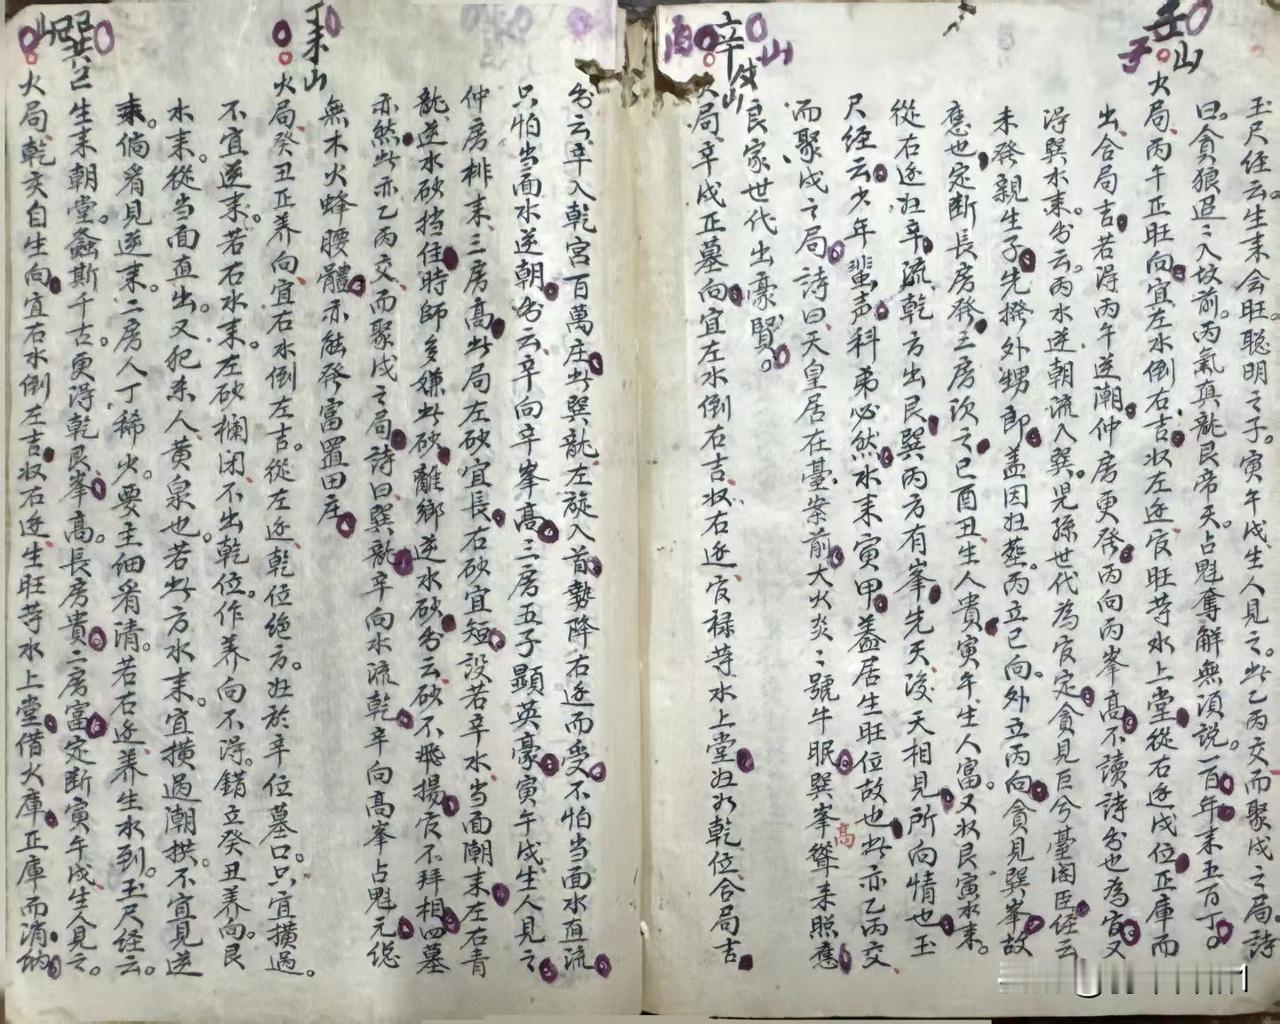 玉尺经云生耒会旺聪明之子寅午戌生人見之此乙丙交而聚戌之局詩
曰貪狼迢〻入坟前丙氣真龍艮帝天占魁奪解無須説一百年耒五百丁
壬山
子
火局丙午正旺向宜左水倒右吉収左迊官旺等水上堂從右迊戌位正庫而
出合局吉若淂丙午逆潮仲房更発丙向丙峯高不讀詩爷也為官又
淂巽水耒爷云丙水逆朝流入巽児孫世代為官定貪見巨兮臺阁臣经云
未發親生子先撥外甥郎盖因廽葬丙立巳向外立丙向貪見巽峯故
應也定断長房發三房次之巳酉丑生人貴寅午生人富又収艮寅水耒
從右迊廽辛流乾方出艮巽丙方有峯先天後天相見所向情也玉
尺经云少年蜚声科弟必然水耒寅甲盖居生旺位故也此亦乙丙交
而聚戌之局詩曰天皇居在臺案前大火炎〻號牛眠巽峯聳耒照應
高
良家世代出豪賢
辛山
戌山
酉
火局辛戌正墓向宜左水倒右吉収右迊官禄等水上堂廽归乾位合局吉
爷云辛入乾宮百萬庄此巽龍左旋入首勢降右迊而受不怕当面水直流
只怕当面水逆朝爷云辛向辛峯高三房五子顯英豪寅午戌生人見之
仲房排耒三房高此局左砂宜長右砂宜短設若辛水当面潮耒左右青
龍逆水砂挡住時師多嫌此砂離鄉逆水砂爷云砂不飛揚官不拜相四墓
亦然此亦乙丙交而聚戌之局詩曰巽龍辛向水流乾辛向高峯占魁元總
無木火蜂腰體亦能發富置田庄
丁耒山
火局癸丑正养向宜右水倒左吉從左迊乾位绝方廽於辛位墓口只宜横過
不宜逆耒若石水耒左砂欄闭不出乾位作养向不淂錯立癸丑养向艮
水耒從当面直出又犯杀人黄泉也若此方水耒宜横過潮拱不宜見逆
耒倘肴見逆耒二房人丁稀火要主细肴清若右迊养生水到玉尺经云
生耒朝堂螽斯千古更淂乾艮峯高長房貴二房富定断寅午戌生人見之
巽山
巳山
火局乾亥自生向宜右水倒左吉収右迊生旺等水上堂借火庫正庫而消納